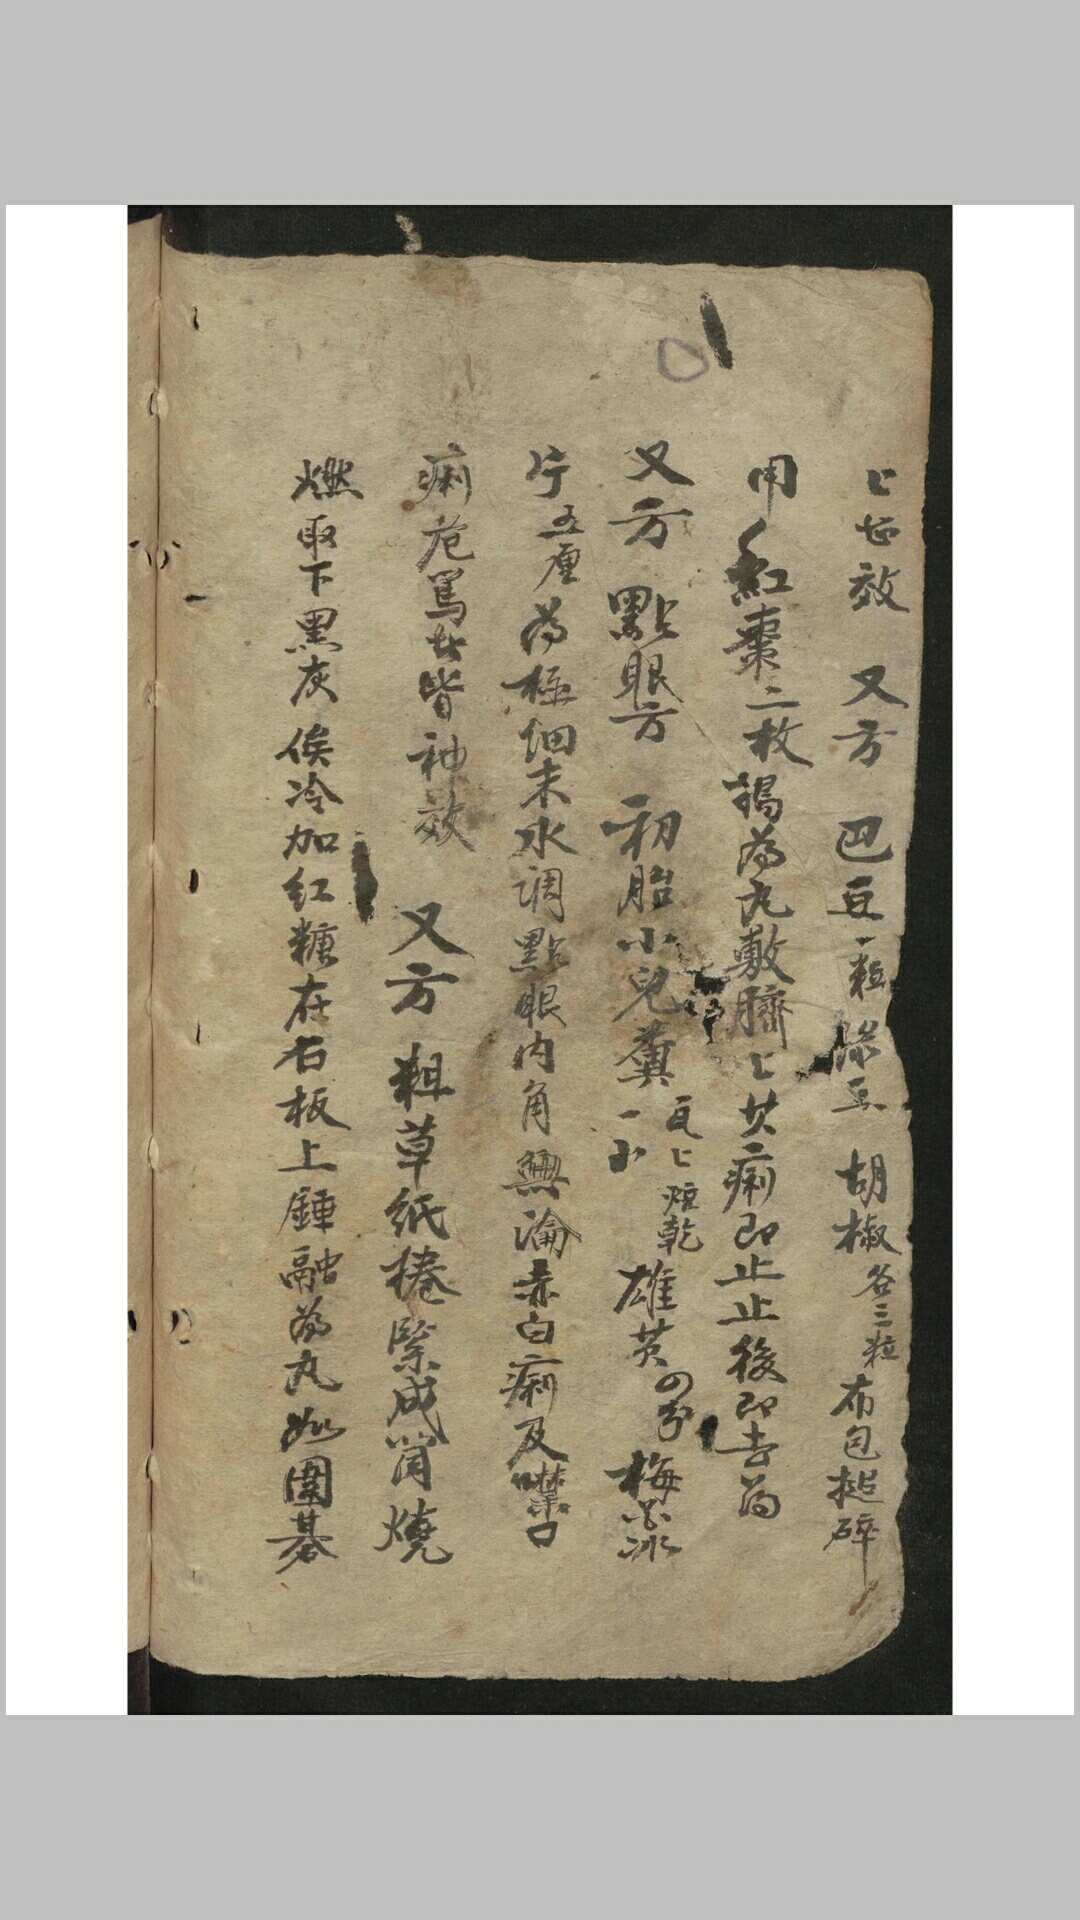 〻甚效　又方　巴豆一粒　菉豆　胡椒各三粒　布包搥碎
用紅棗二枚搗為丸敷臍〻其痢即止止後即去為
又方　點眼方　初胎小兒糞一分瓦上焙乾　雄黃四分　梅花冰
片五厘為極细末水调點眼内角無論赤白痢及噤口
痢危篤者皆神效　又方　粗草紙捲緊成筒燒
燃取下黑灰俟冷加红糖在石板上錘融為丸如圍棊